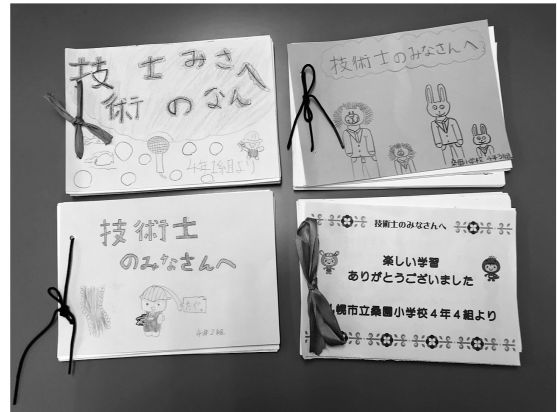 技術士みなさんへ
の
4年1組より
技術士のみなさんへ
桑園小学校 4年3組
技術士
のみなさんへ
4年2組
技術士のみなさんへ
楽しい学習
ありがとうございました
幌市立桑園小学校4年4組より